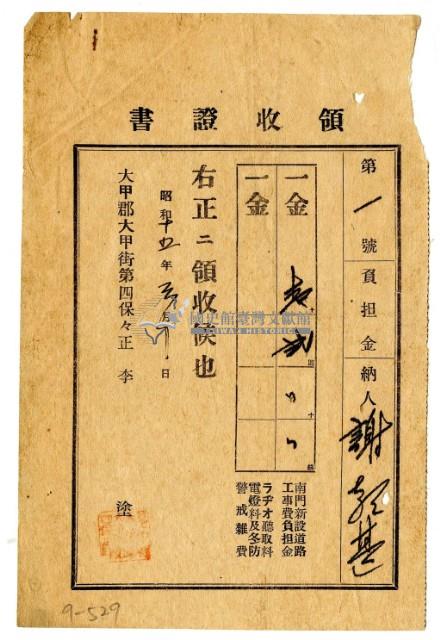 領收證書
第一號負担金納人 謝
一金
一金
圓
十
錢
南門新設道路
工事費負担金
ラヂオ聽取料
電燈料及冬防
警戒雜費
右正ニ領收候也
昭和十五年 月 日
大甲郡大甲街第四保々正 李 塗
國史館臺灣文獻館
TAIWAN HISTORICA
9-529